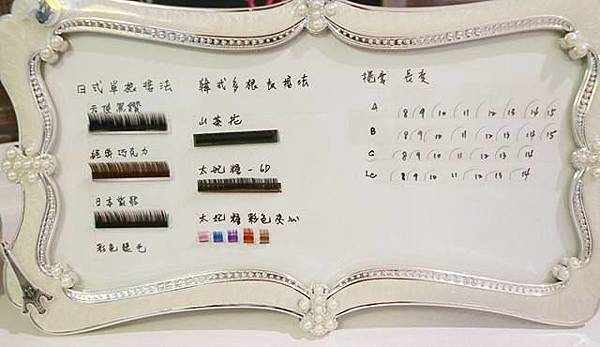 日式單根接法
天使黑鑽
經典巧克力
日本紫貂
彩色睫毛
韓式多根
山茶花
太妃糖-6D
太妃糖彩色夾心
捲度 長度
A 8 9 10 11 12 13 14 15
B 8 9 10 11 12 13 14 15
C 8 9 10 11 12 13 14
8 9 10 11 12 13 14